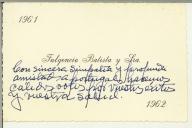 1961
Fulgencio Batista y Sra.
Con sincera simpatía y profunda
amistad a
votos por vuestro
y vuestra salud.
1962